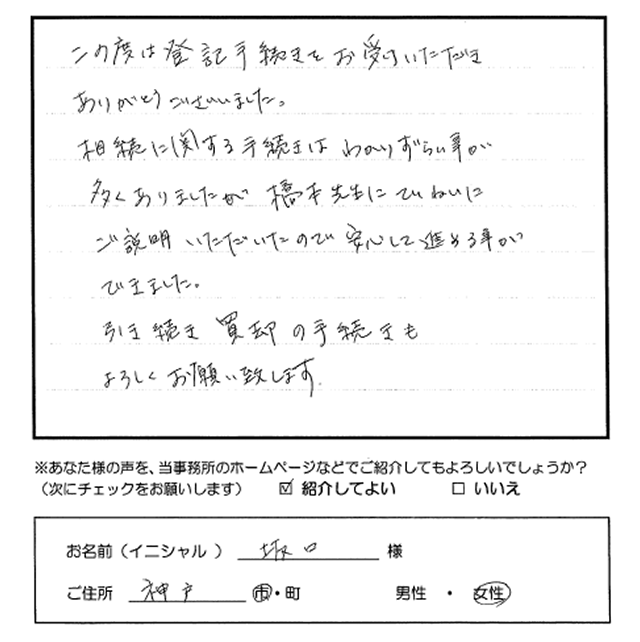 この度は登記手続きをお受けいただき
ありがとうございました。
相続に関する手続きは わかりずらい事が
多くありましたが 橋本先生にていねいに
ご説明いただいたので安心して進める事が
できました。
引き続き 買却の手続きも
よろしくお願い致します
※あなた様の声を、当事務所のホームページなどでご紹介してもよろしいでしょうか?
(次にチェックをお願いします) ☑ 紹介してよい □ いいえ
お名前(イニシャル) 坂口 様
ご住所 神戸 市・町 男性 ・ 女性